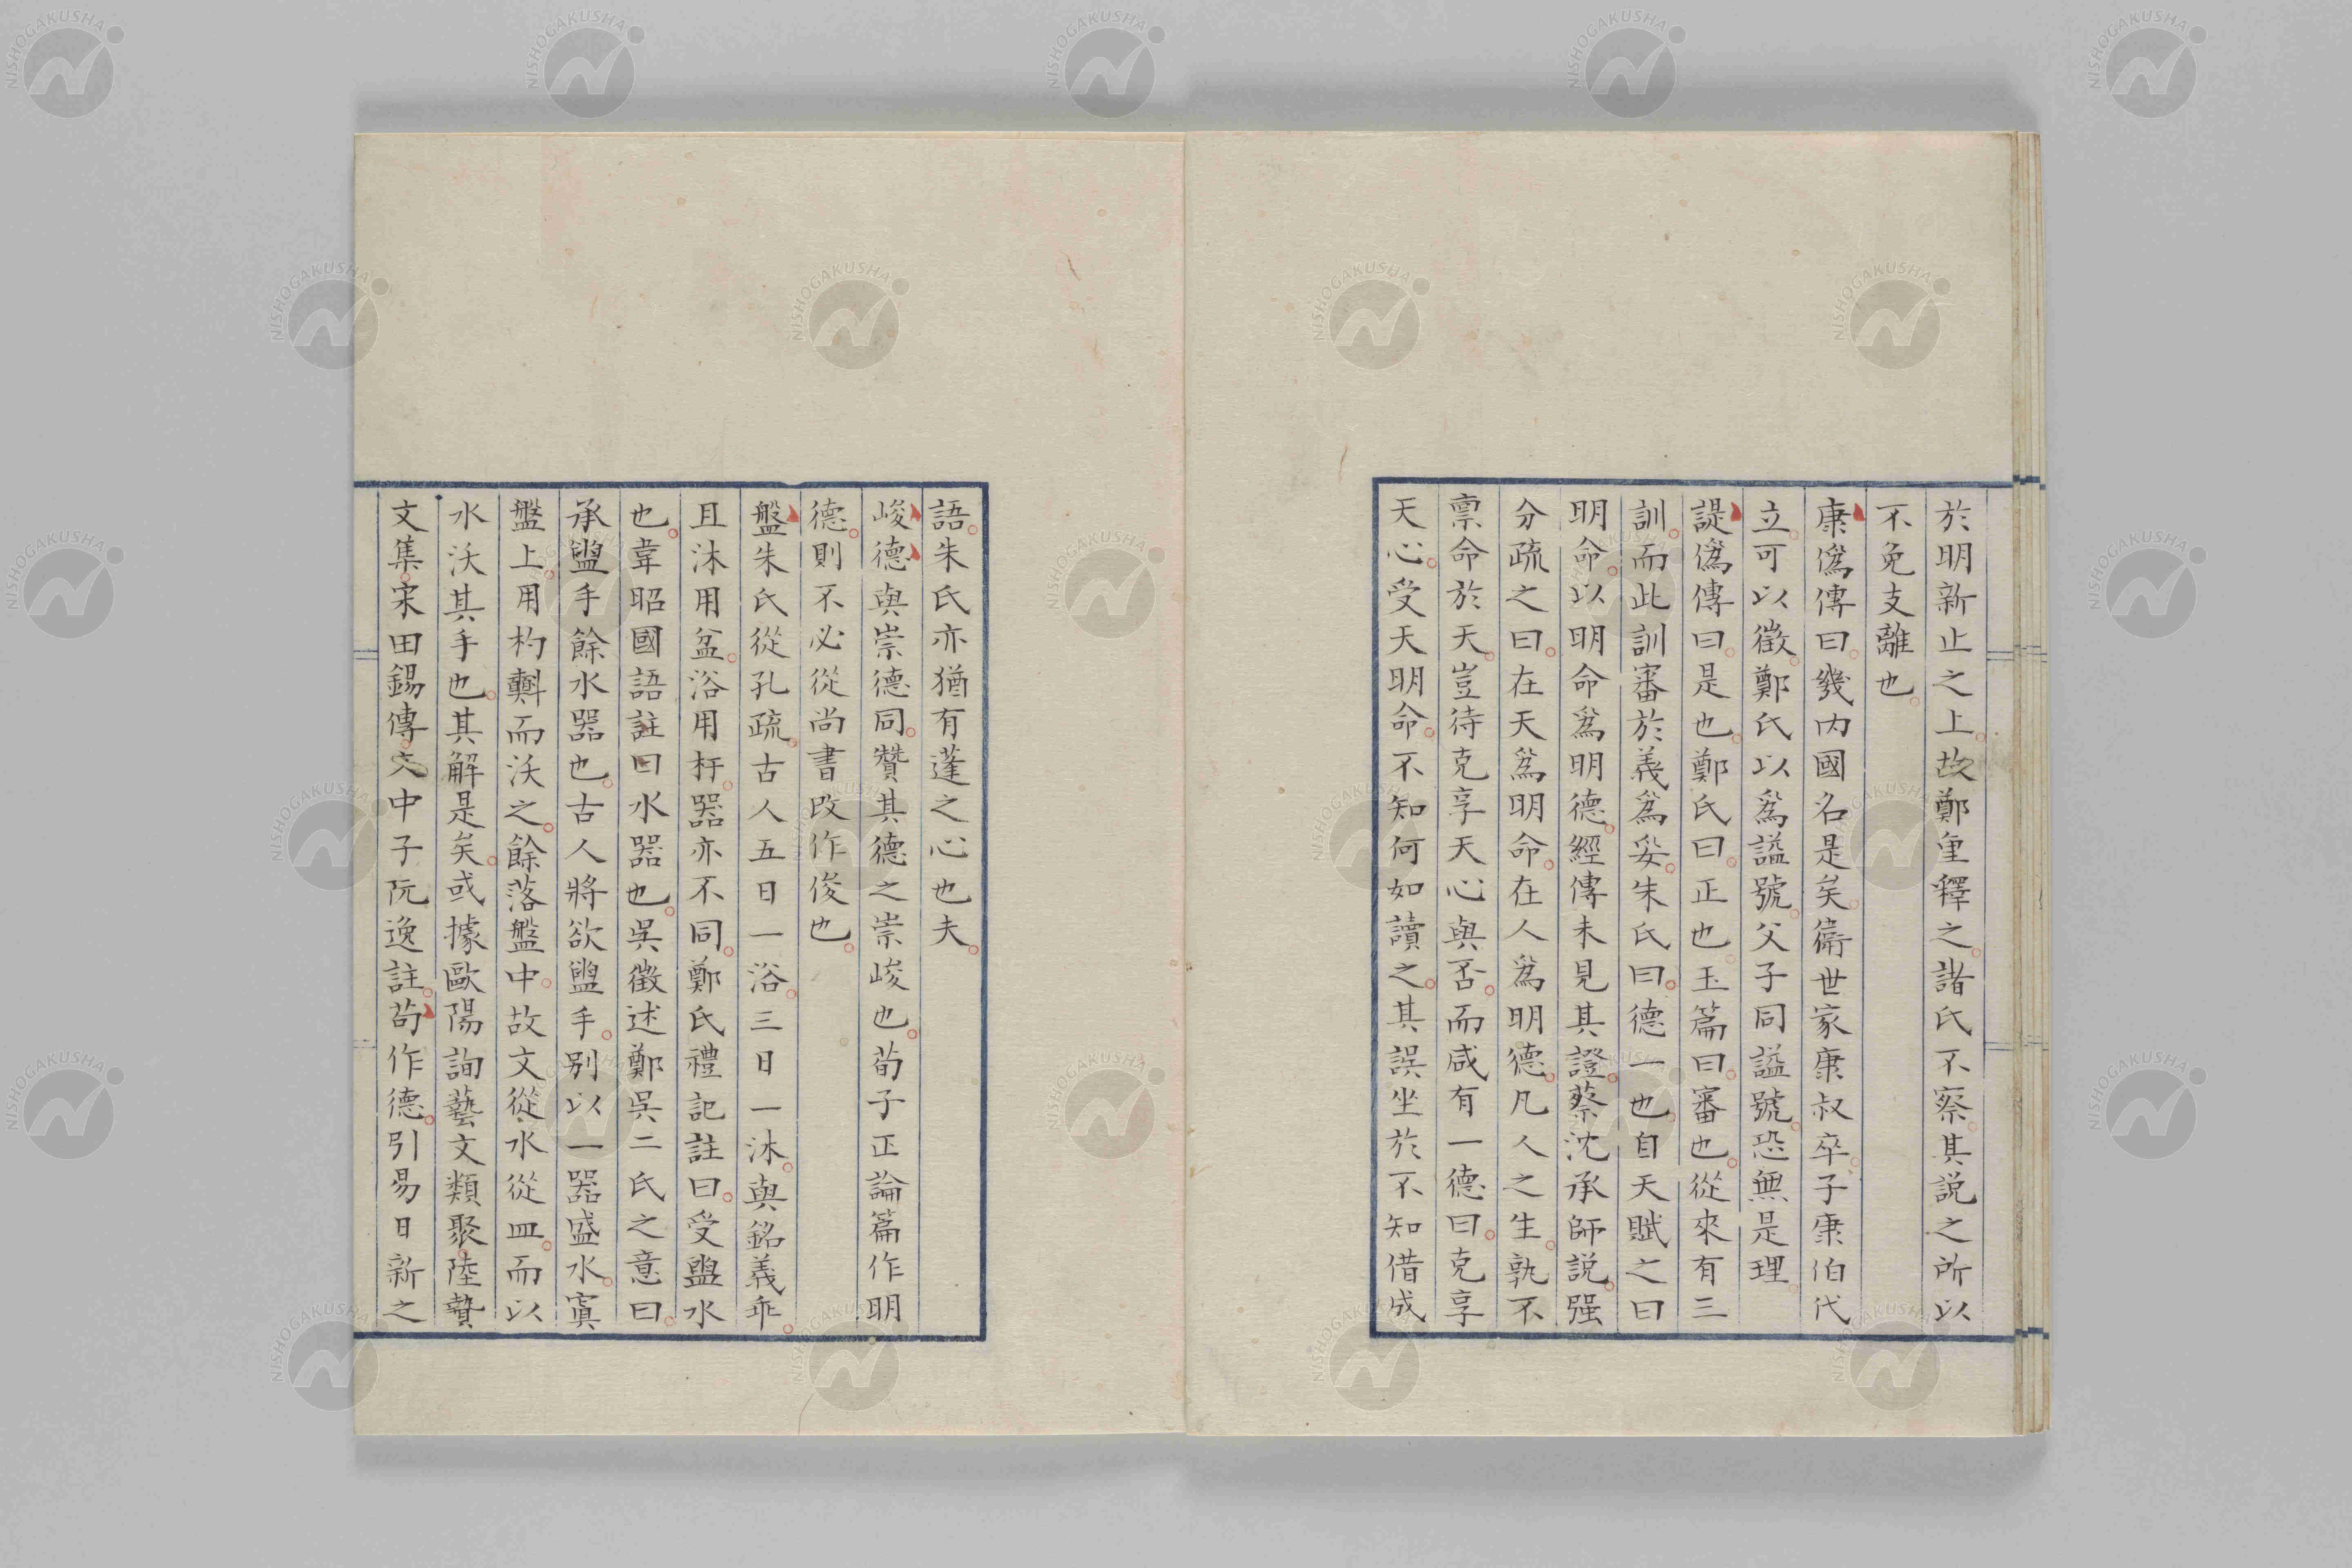 於明新止之上故鄭重釋之諸氏不察其説之所以
不免支離也
康僞傳曰幾内國名是矣衞世家康叔卒子康伯代
立可以徵鄭氏以爲謚號父子同謚號恐無是理
諟僞傳曰是也鄭氏曰正也玉篇曰審也從來有三
訓而此訓審於義爲妥朱氏曰德一也自天賦之曰
明命以明命爲明德經傳未見其證蔡沈承師説强
分疏之曰在天爲明命在人爲明德凡人之生孰不
禀命於天豈待克享天心與否而咸有一德曰克享
天心受天明命不知何如讀之其誤坐於不知借成
語朱氏亦猶有蓬之心也夫
峻德與崇德同贊其德之崇峻也荀子正論篇作明
德則不必從尚書改作俊也
盤朱氏從孔疏古人五日一浴三日一沐與銘義乖
且沐用盆浴用杅器亦不同鄭氏禮記註曰受盥水
也韋昭國語註曰水器也吳徵述鄭吳二氏之意曰
承盥手餘水器也古人將欲盥手別以一器盛水寘
盤上用杓㪺而沃之餘落盤中故文從水從皿而以
水沃其手也其解是矣或據歐陽詢藝文類聚陸贄
文集宋田錫傳文中子阮逸註茍作德引易日新之
NISHOGAKUSHA